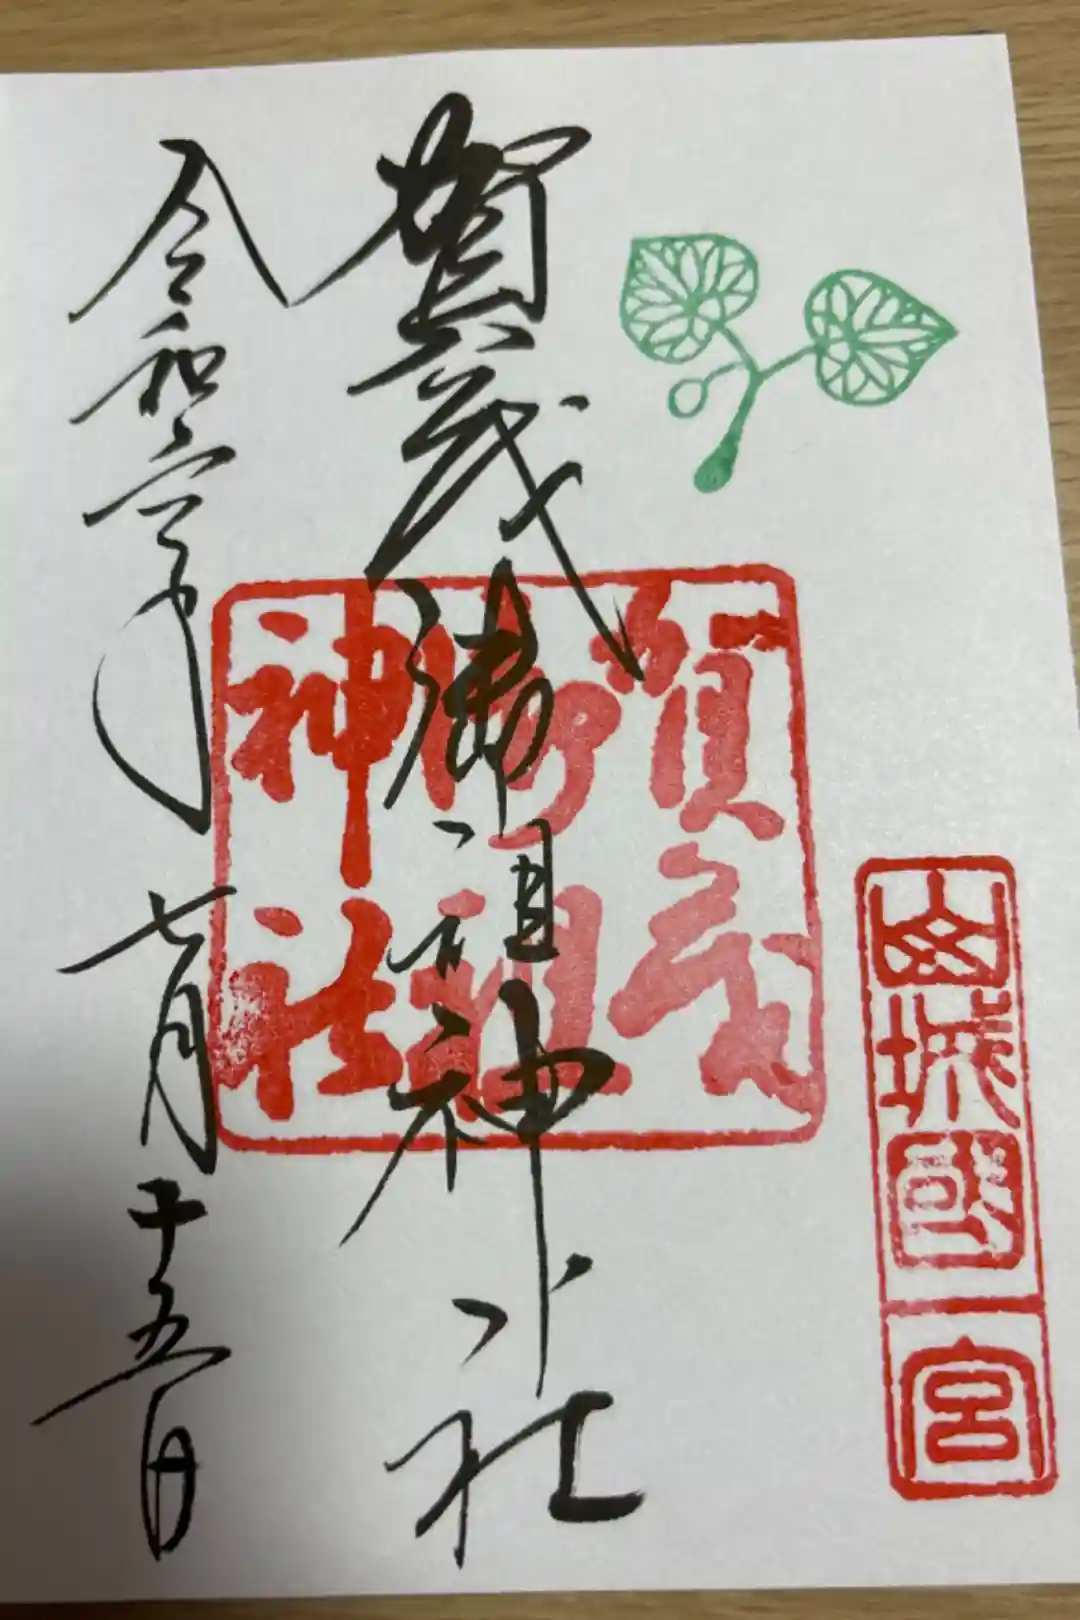 山城國一宮
賀茂御祖神社
賀茂御祖神社
令和六年七月十五日